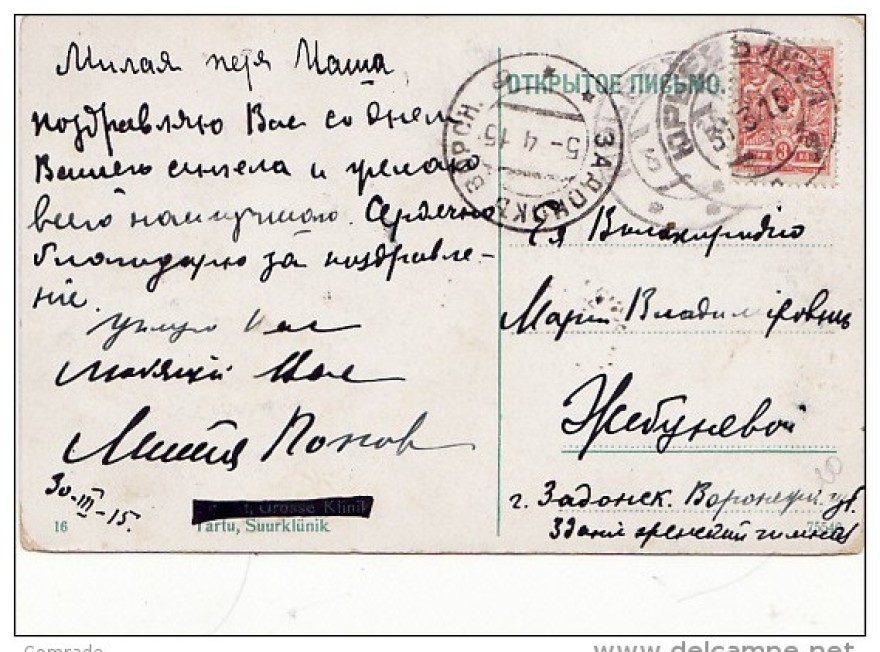 Милая тетя Маша
поздравляю Вас со днем
Вашего ангела и желаю
всего наилучшаго. Сердечно
благодарю за поздравле-
ніе.
Целую Вас
Любящій Вас
Митя Попов
30-III-15.
Grosse Klinik
16 Tartu, Suurkliinik
ОТКРЫТОЕ ПИСЬМО.
ЗАДОНСКЪ
5-4 15
ЮРЬЕВЪ
Ея
Маріи Владиміровнѣ
Жебуневой
г. Задонск. Воронеж. губ.
Зданіе женской гимназ
Comrade
www.delcampe.net